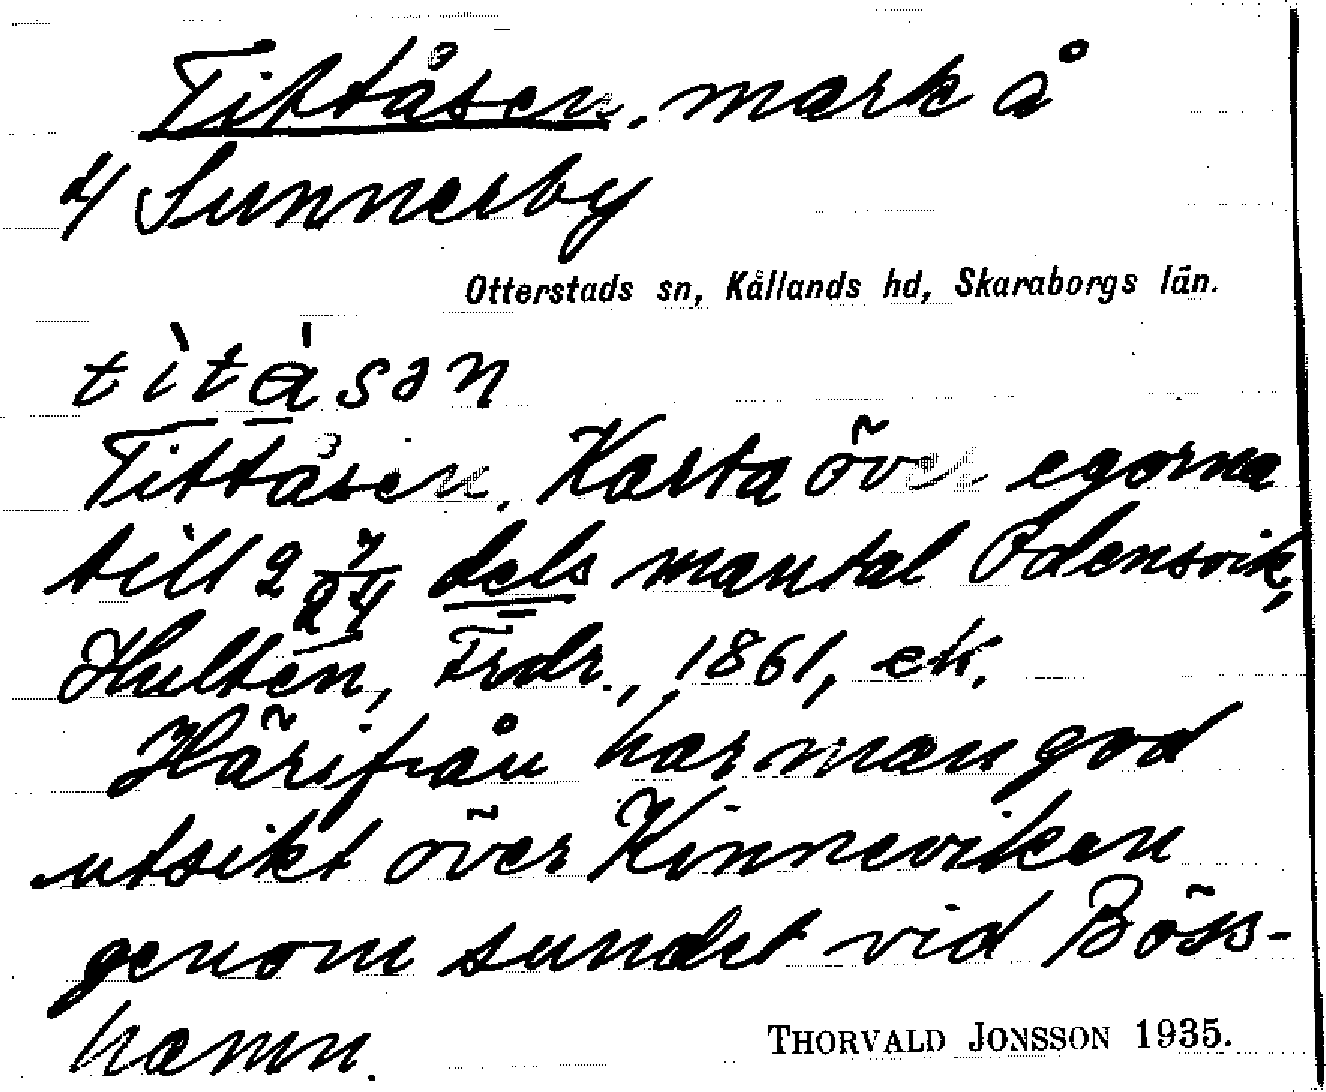 Tittåsen, mark å
4/ Sunnerby
Otterstads sn, Kållands hd, Skaraborgs län.
tìtásən
Tittåsen. Karta över egorna
till 2 7/24 dels mantal Odensvik,
Hultén, Frdr., 1861, ek.
Härifrån har man god
utsikt över Kinneviken
genom sundet vid Böss-
hamn.
THORVALD JONSSON 1935.